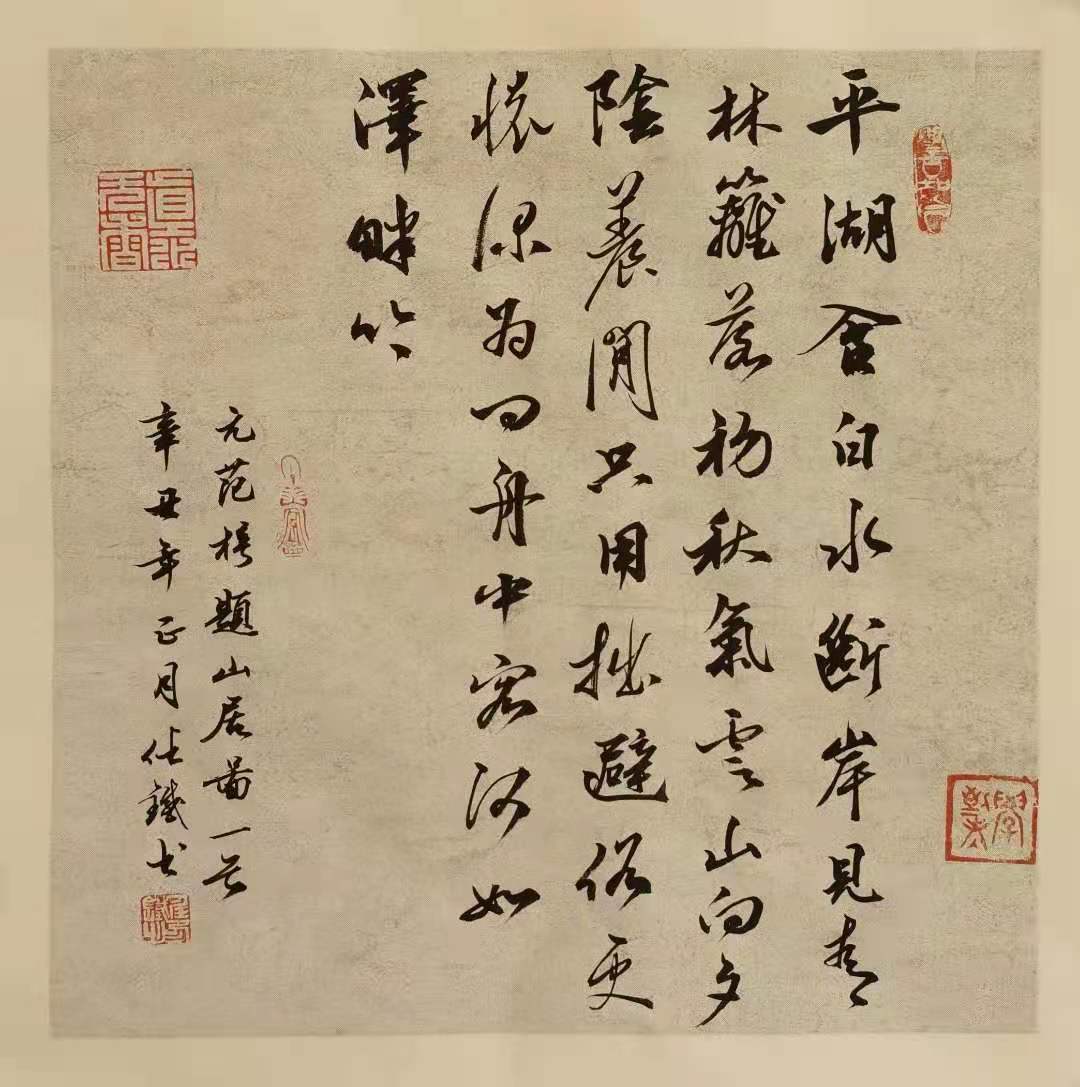 平湖含白水斷岸見青
林籬落初秋氣雲山向夕
陰養閒只用拙避俗更
懷深為問舟中客何如
澤畔吟
元范梈題山居圖一首
辛丑年正月鐵書